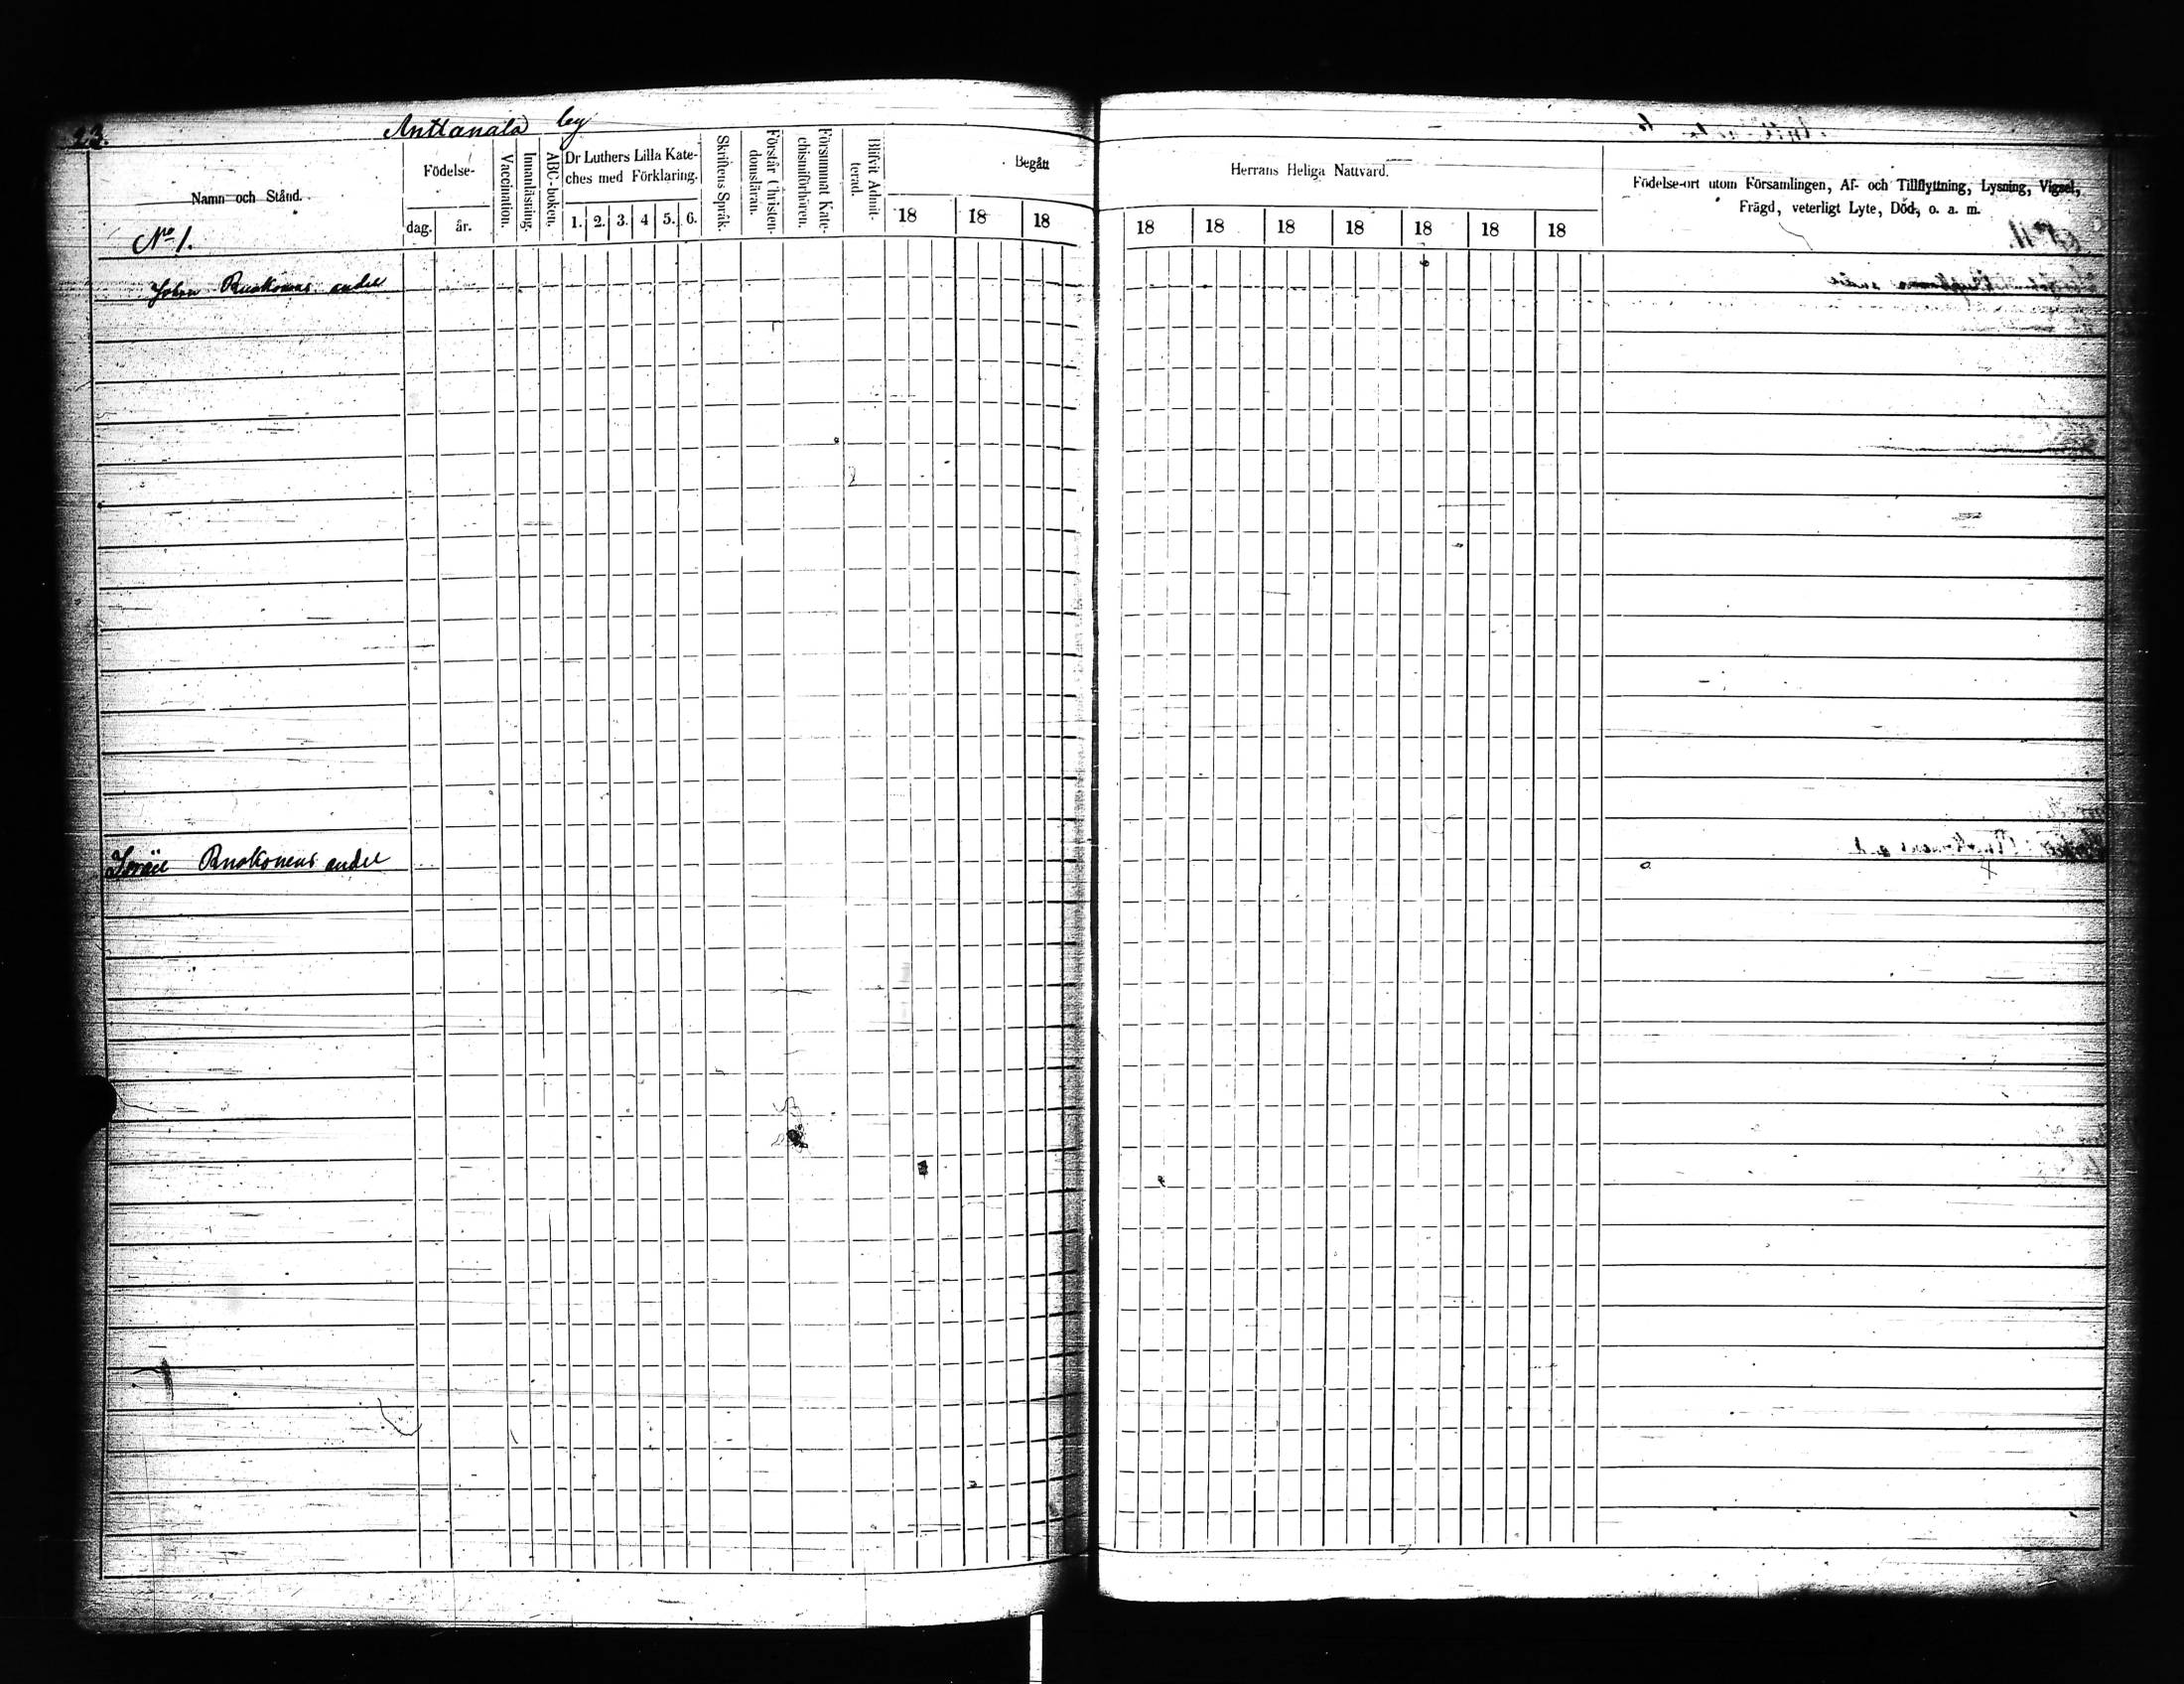 23.
Anttanala by
Namn och Stånd.
Födelse-
dag. år.
Vaccination.
Innanläsning.
ABC-boken.
Dr Luthers Lilla Kate-
ches med Förklaring.
1. 2. 3. 4 5. 6.
Skriftens Språk.
Förstår Christen-
domsläran.
Försummat Kate-
chismiförhören.
Blifvit Admit-
terad.
Begått
18 18 18
Herrans Heliga Nattvard.
18 18 18 18 18 18 18
Födelse-ort utom Församlingen, Af- och Tillflyttning, Lysning, Vigsel,
Frägd, veterligt Lyte, Död, o. a. m.
No 1.
Johan Ruokonens andel
Israel Ruokonens andel